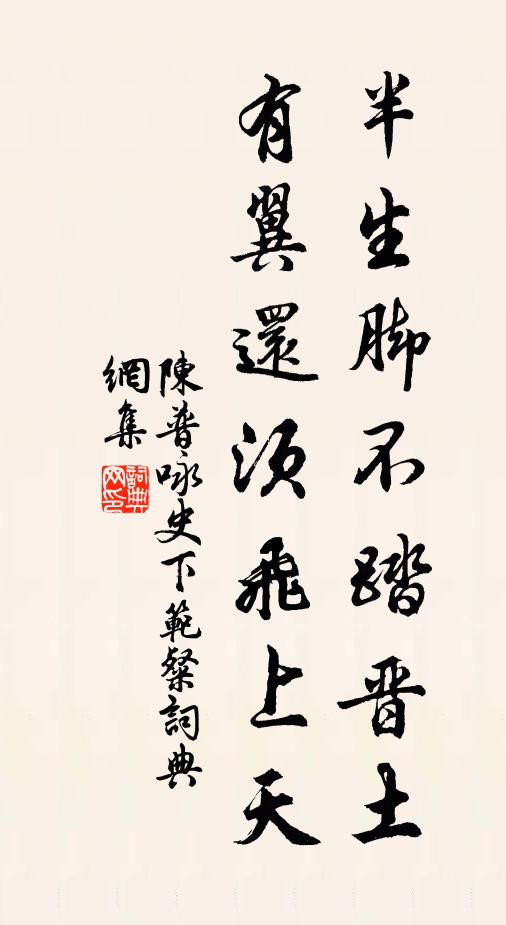 半生脚不踏晋土
有翼還須飛上天
陳普咏史下範粲詞典
網集
詞典網印